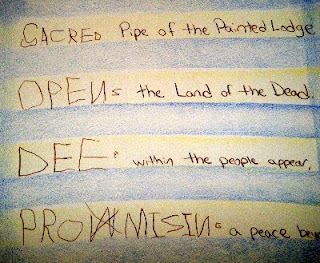 SACRED Pipe of the Painted Lodge
OPENs the Land of the Dead.
DEEp within the people appear,
PROMISINg a peace